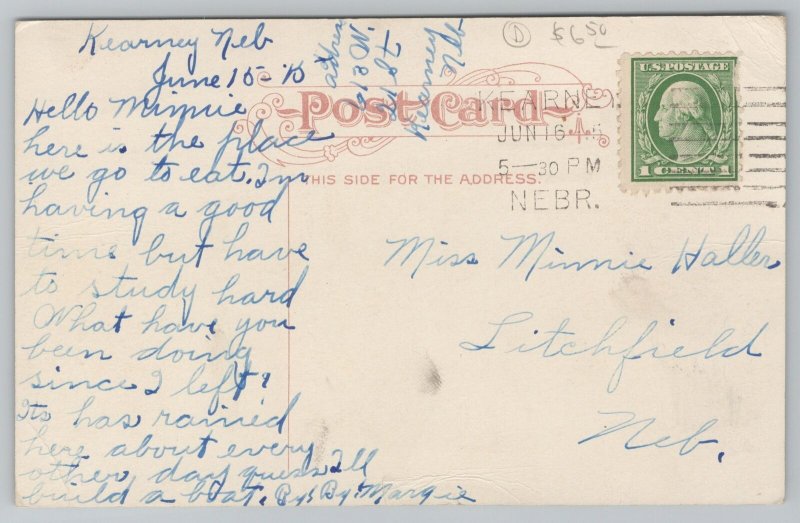 Kearney Neb
June 15-15
Hello Minnie
here is the place
we go to eat. I'm
having a good
time but have
to study hard
What have you
been doing
since I left?
Its has rained
here about every
other day guess I'll
build a boat. By! By! Margie
Kearney
Neb
D $6.50
Post Card
THIS SIDE FOR THE ADDRESS.
KEARNEY
JUN 16
5-30 PM
NEBR.
U.S. POSTAGE
1 CENT 1
Miss Minnie Haller
Litchfield
Neb.